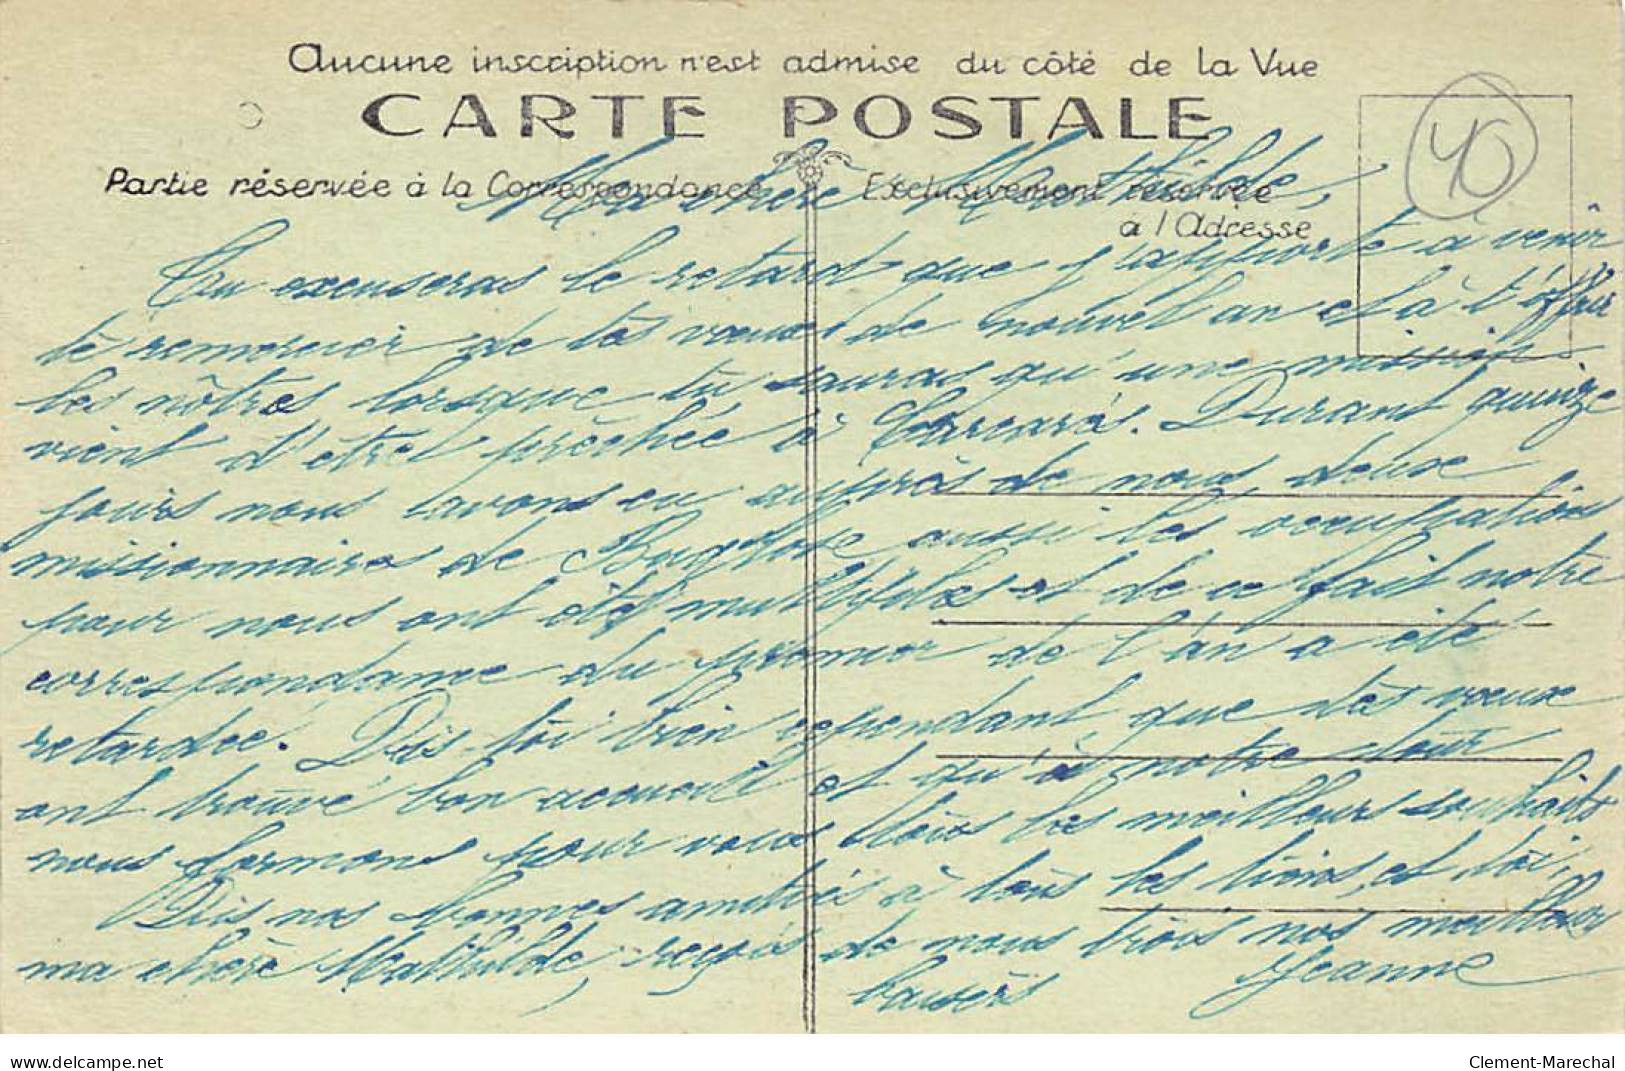 Aucune inscription n'est admise du côté de la Vue
CARTE POSTALE
Partie réservée à la Correspondance
Exclusivement réservée
à l'Adresse
40
Ma chère Mathilde,
Tu excuseras le retard que j'apporte à venir
te remercier de tes vœux de nouvel an et à t'offrir
les nôtres lorsque tu sauras qu'une mission
vient d'être prêchée à Carcarès. Durant quinze
jours nous avons eu auprès de nous deux
missionnaires de Buglose aussi les occupations
pour nous ont été multiples et de ce fait notre
correspondance du premier de l'an a été
retardée. Dis-toi bien cependant que tes vœux
ont trouvé bon accueil et qu'à notre tour
nous formons pour vous tous les meilleurs souhaits
Dis nos bonnes amitiés à tous les tiens, et toi,
ma chère Mathilde, reçois de nous trois nos meilleurs
baisers
Jeanne
delcampe.net
Clement-Marechal